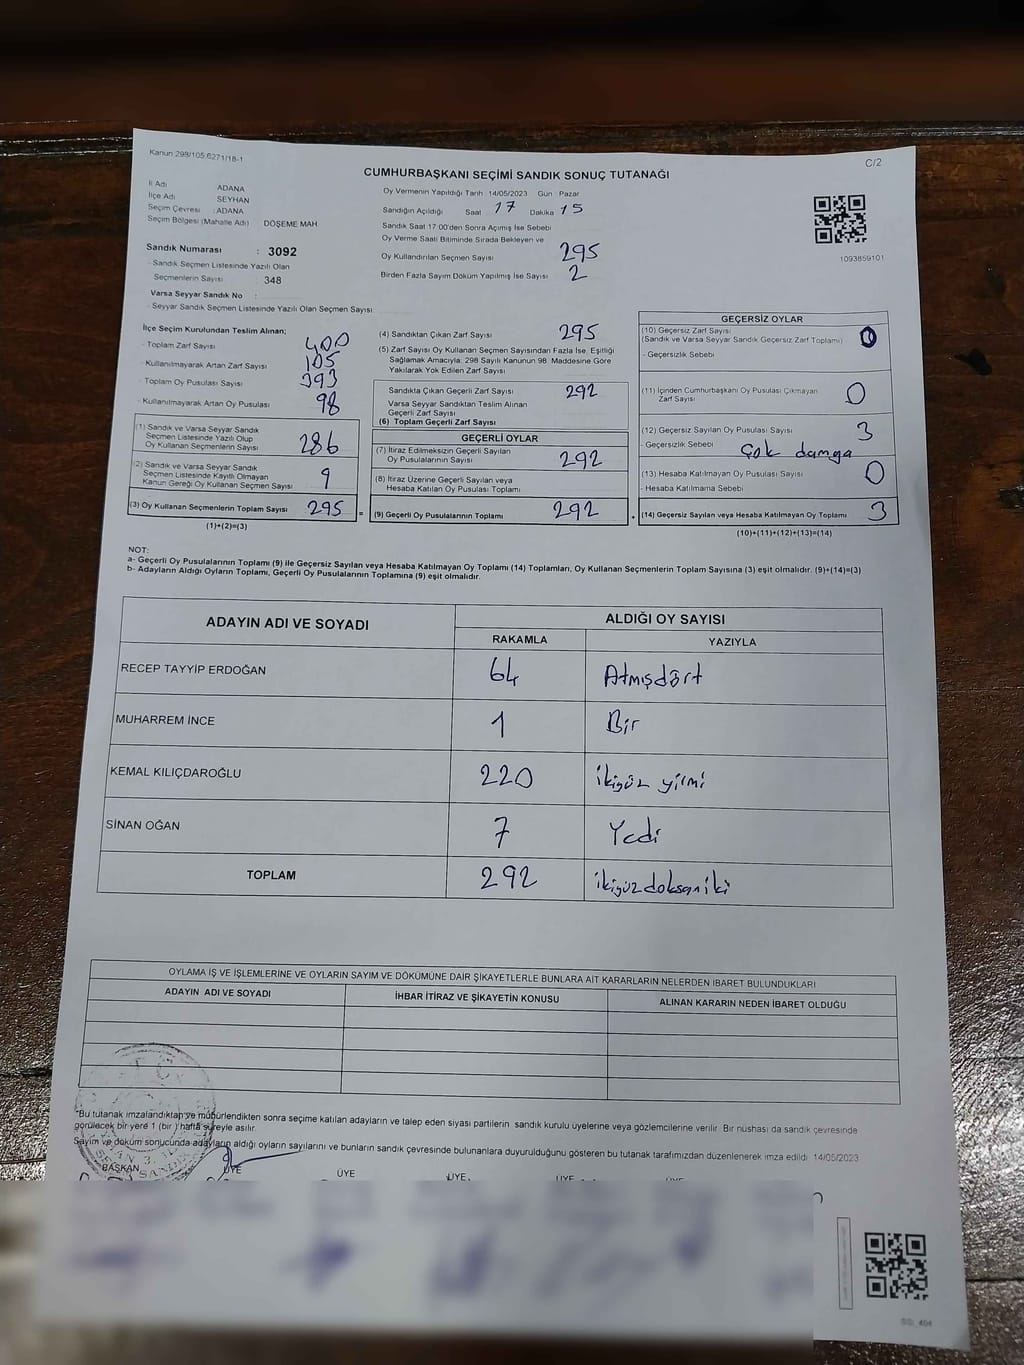 Kanun 298/105,6271/18-1
C/2
CUMHURBAŞKANI SEÇİMİ SANDIK SONUÇ TUTANAĞI
İl Adı ADANA
İlçe Adı SEYHAN
Seçim Çevresi : ADANA
Seçim Bölgesi (Mahalle Adı) DÖŞEME MAH.
Sandık Numarası : 3092
- Sandık Seçmen Listesinde Yazılı Olan
Seçmenlerin Sayısı : 348
Varsa Seyyar Sandık No :
- Seyyar Sandık Seçmen Listesinde Yazılı Olan Seçmen Sayısı:
Oy Vermenin Yapıldığı Tarih : 14/05/2023 Gün : Pazar
Sandığın Açıldığı Saat 17 Dakika 15
Sandık Saat 17:00'den Sonra Açılmış İse Sebebi
Oy Verme Saati Bitiminde Sırada Bekleyen ve
Oy Kullandırılan Seçmen Sayısı 295
Birden Fazla Sayım Döküm Yapılmış İse Sayısı 2
1093859101
İlçe Seçim Kurulundan Teslim Alınan;
- Toplam Zarf Sayısı 400
- Kullanılmayarak Artan Zarf Sayısı 105
- Toplam Oy Pusulası Sayısı 393
- Kullanılmayarak Artan Oy Pusulası 98
(1) Sandık ve Varsa Seyyar Sandık
Seçmen Listesinde Yazılı Olup
Oy Kullanan Seçmenlerin Sayısı 286
(2) Sandık ve Varsa Seyyar Sandık
Seçmen Listesinde Kayıtlı Olmayan
Kanun Gereği Oy Kullanan Seçmen Sayısı 9
(3) Oy Kullanan Seçmenlerin Toplam Sayısı 295
(1)+(2)=(3)
(4) Sandıktan Çıkan Zarf Sayısı 295
(5) Zarf Sayısı Oy Kullanan Seçmen Sayısından Fazla İse, Eşitliği
Sağlamak Amacıyla; 298 Sayılı Kanunun 98. Maddesine Göre
Yakılarak Yok Edilen Zarf Sayısı
Sandıkta Çıkan Geçerli Zarf Sayısı 292
Varsa Seyyar Sandıktan Teslim Alınan
Geçerli Zarf Sayısı
(6) Toplam Geçerli Zarf Sayısı
GEÇERLİ OYLAR
(7) İtiraz Edilmeksizin Geçerli Sayılan
Oy Pusulalarının Sayısı 292
(8) İtiraz Üzerine Geçerli Sayılan veya
Hesaba Katılan Oy Pusulası Toplamı
= (9) Geçerli Oy Pusulalarının Toplamı 292 +
GEÇERSİZ OYLAR
(10) Geçersiz Zarf Sayısı 0
(Sandık ve Varsa Seyyar Sandık Geçersiz Zarf Toplamı)
- Geçersizlik Sebebi
(11) İçinden Cumhurbaşkanı Oy Pusulası Çıkmayan
Zarf Sayısı 0
(12) Geçersiz Sayılan Oy Pusulası Sayısı 3
- Geçersizlik Sebebi Çok damga
(13) Hesaba Katılmayan Oy Pusulası Sayısı 0
- Hesaba Katılmama Sebebi
(14) Geçersiz Sayılan veya Hesaba Katılmayan Oy Toplamı 3
(10)+(11)+(12)+(13)=(14)
NOT:
a- Geçerli Oy Pusulalarının Toplamı (9) ile Geçersiz Sayılan veya Hesaba Katılmayan Oy Toplamı (14) Toplamları, Oy Kullanan Seçmenlerin Toplam Sayısına (3) eşit olmalıdır. (9)+(14)=(3)
b- Adayların Aldığı Oyların Toplamı, Geçerli Oy Pusulalarının Toplamına (9) eşit olmalıdır.
ADAYIN ADI VE SOYADI ALDIĞI OY SAYISI
RAKAMLA YAZIYLA
RECEP TAYYİP ERDOĞAN 64 Atmışdört
MUHARREM İNCE 1 Bir
KEMAL KILIÇDAROĞLU 220 ikiyüz yirmi
SİNAN OĞAN 7 Yedi
TOPLAM 292 ikiyüzdoksaniki
OYLAMA İŞ VE İŞLEMLERİNE VE OYLARIN SAYIM VE DÖKÜMÜNE DAİR ŞİKAYETLERLE BUNLARA AİT KARARLARIN NELERDEN İBARET BULUNDUKLARI
ADAYIN ADI VE SOYADI İHBAR İTİRAZ VE ŞİKAYETİN KONUSU ALINAN KARARIN NEDEN İBARET OLDUĞU
*Bu tutanak imzalandıktan ve mühürlendikten sonra seçime katılan adayların ve talep eden siyasi partilerin sandık kurulu üyelerine veya gözlemcilerine verilir. Bir nüshası da sandık çevresinde
görülecek bir yere 1 (bir ) hafta süreyle asılır.
Sayım ve döküm sonucunda adayların aldığı oyların sayılarını ve bunların sandık çevresinde bulunanlara duyurulduğunu gösteren bu tutanak tarafımızdan düzenlenerek imza edildi. 14/05/2023
BAŞKAN ÜYE ÜYE ÜYE ÜYE